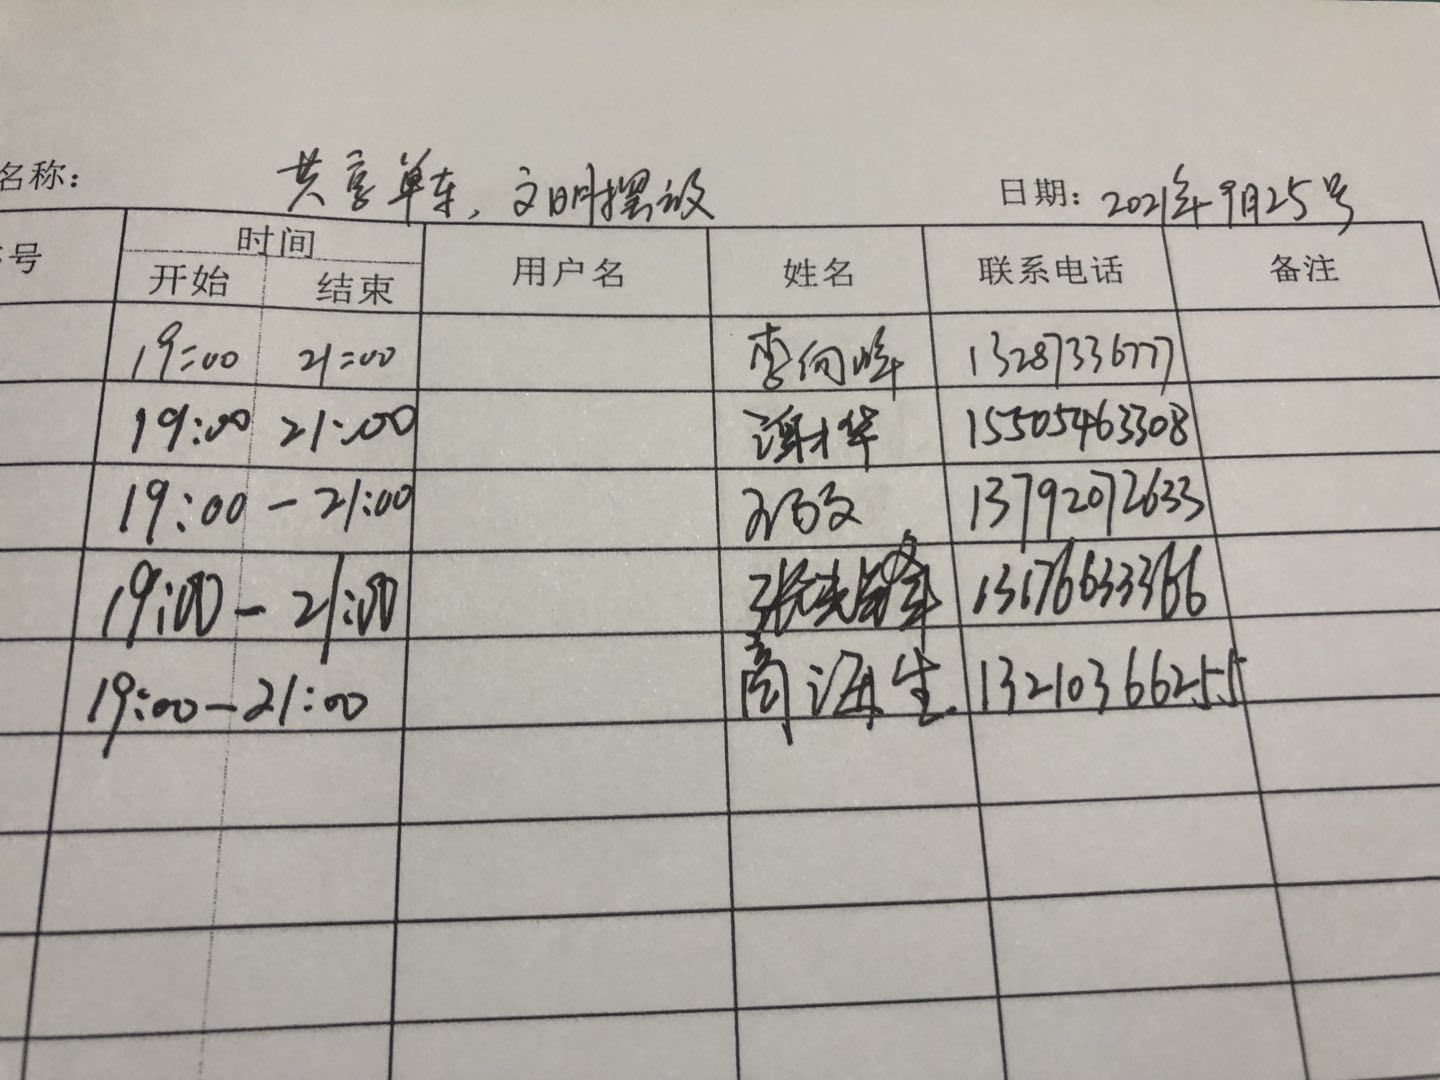 名称： 共享单车，文明摆放 日期：2021年9月25号
号 时间 用户名 姓名 联系电话 备注
开始 结束
19:00 21:00 李向峰 13287336777
19:00 21:00 谢才华 15505463308
19:00-21:00 13792072633
19:00-21:00 13176633366
19:00-21:00 商海生 13210366255